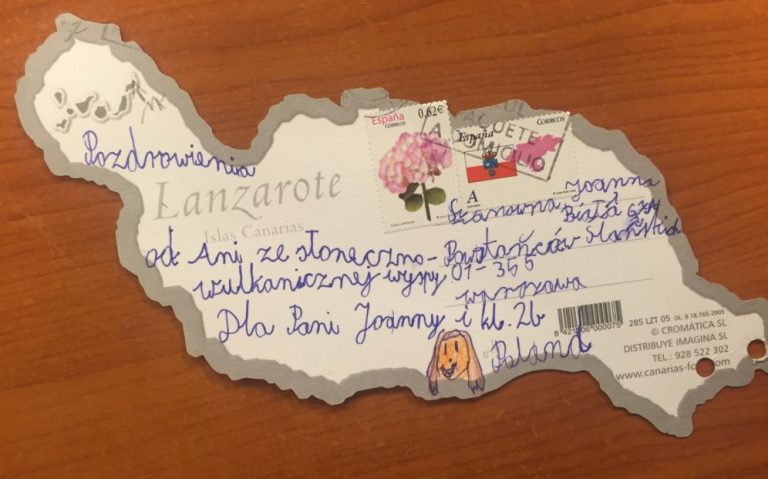 Pozdrowienia
Lanzarote
Islas Canarias
od Ani ze słoneczno-
wulkanicznej wyspy
Dla Pani Joanny i kl. 2b
España
CORREOS
0,62€
España
CORREOS
A
PAQUETE
DOMICILIO
Szanowna Joanna
Biała
Powstańców Śląskich
01-355
Warszawa
Poland
8 421006 000075
285 LZT 05 DL: B 18.765-2005
© CROMÁTICA SL
DISTRIBUYE IMAGINA SL
TEL.: 928 522 302